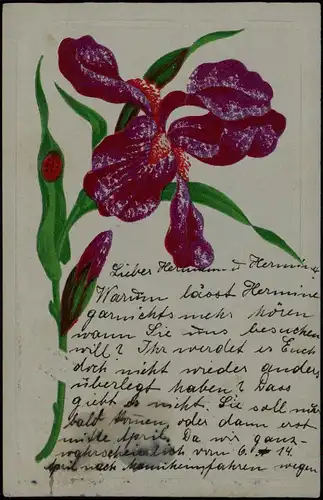 Lieber Hermann u Hermine
Warum lässt Hermine
garnichts mehr hören
wann Sie uns besuchen
will? Ihr werdet es Euch
doch nicht wieder anders
überlegt haben? Dass
giebt es nicht. Sie soll nur
bald kommen, oder dann erst
mitte April. Da wir ganz-
wahrscheinlich vom 6. 14
April nach fahren wegen